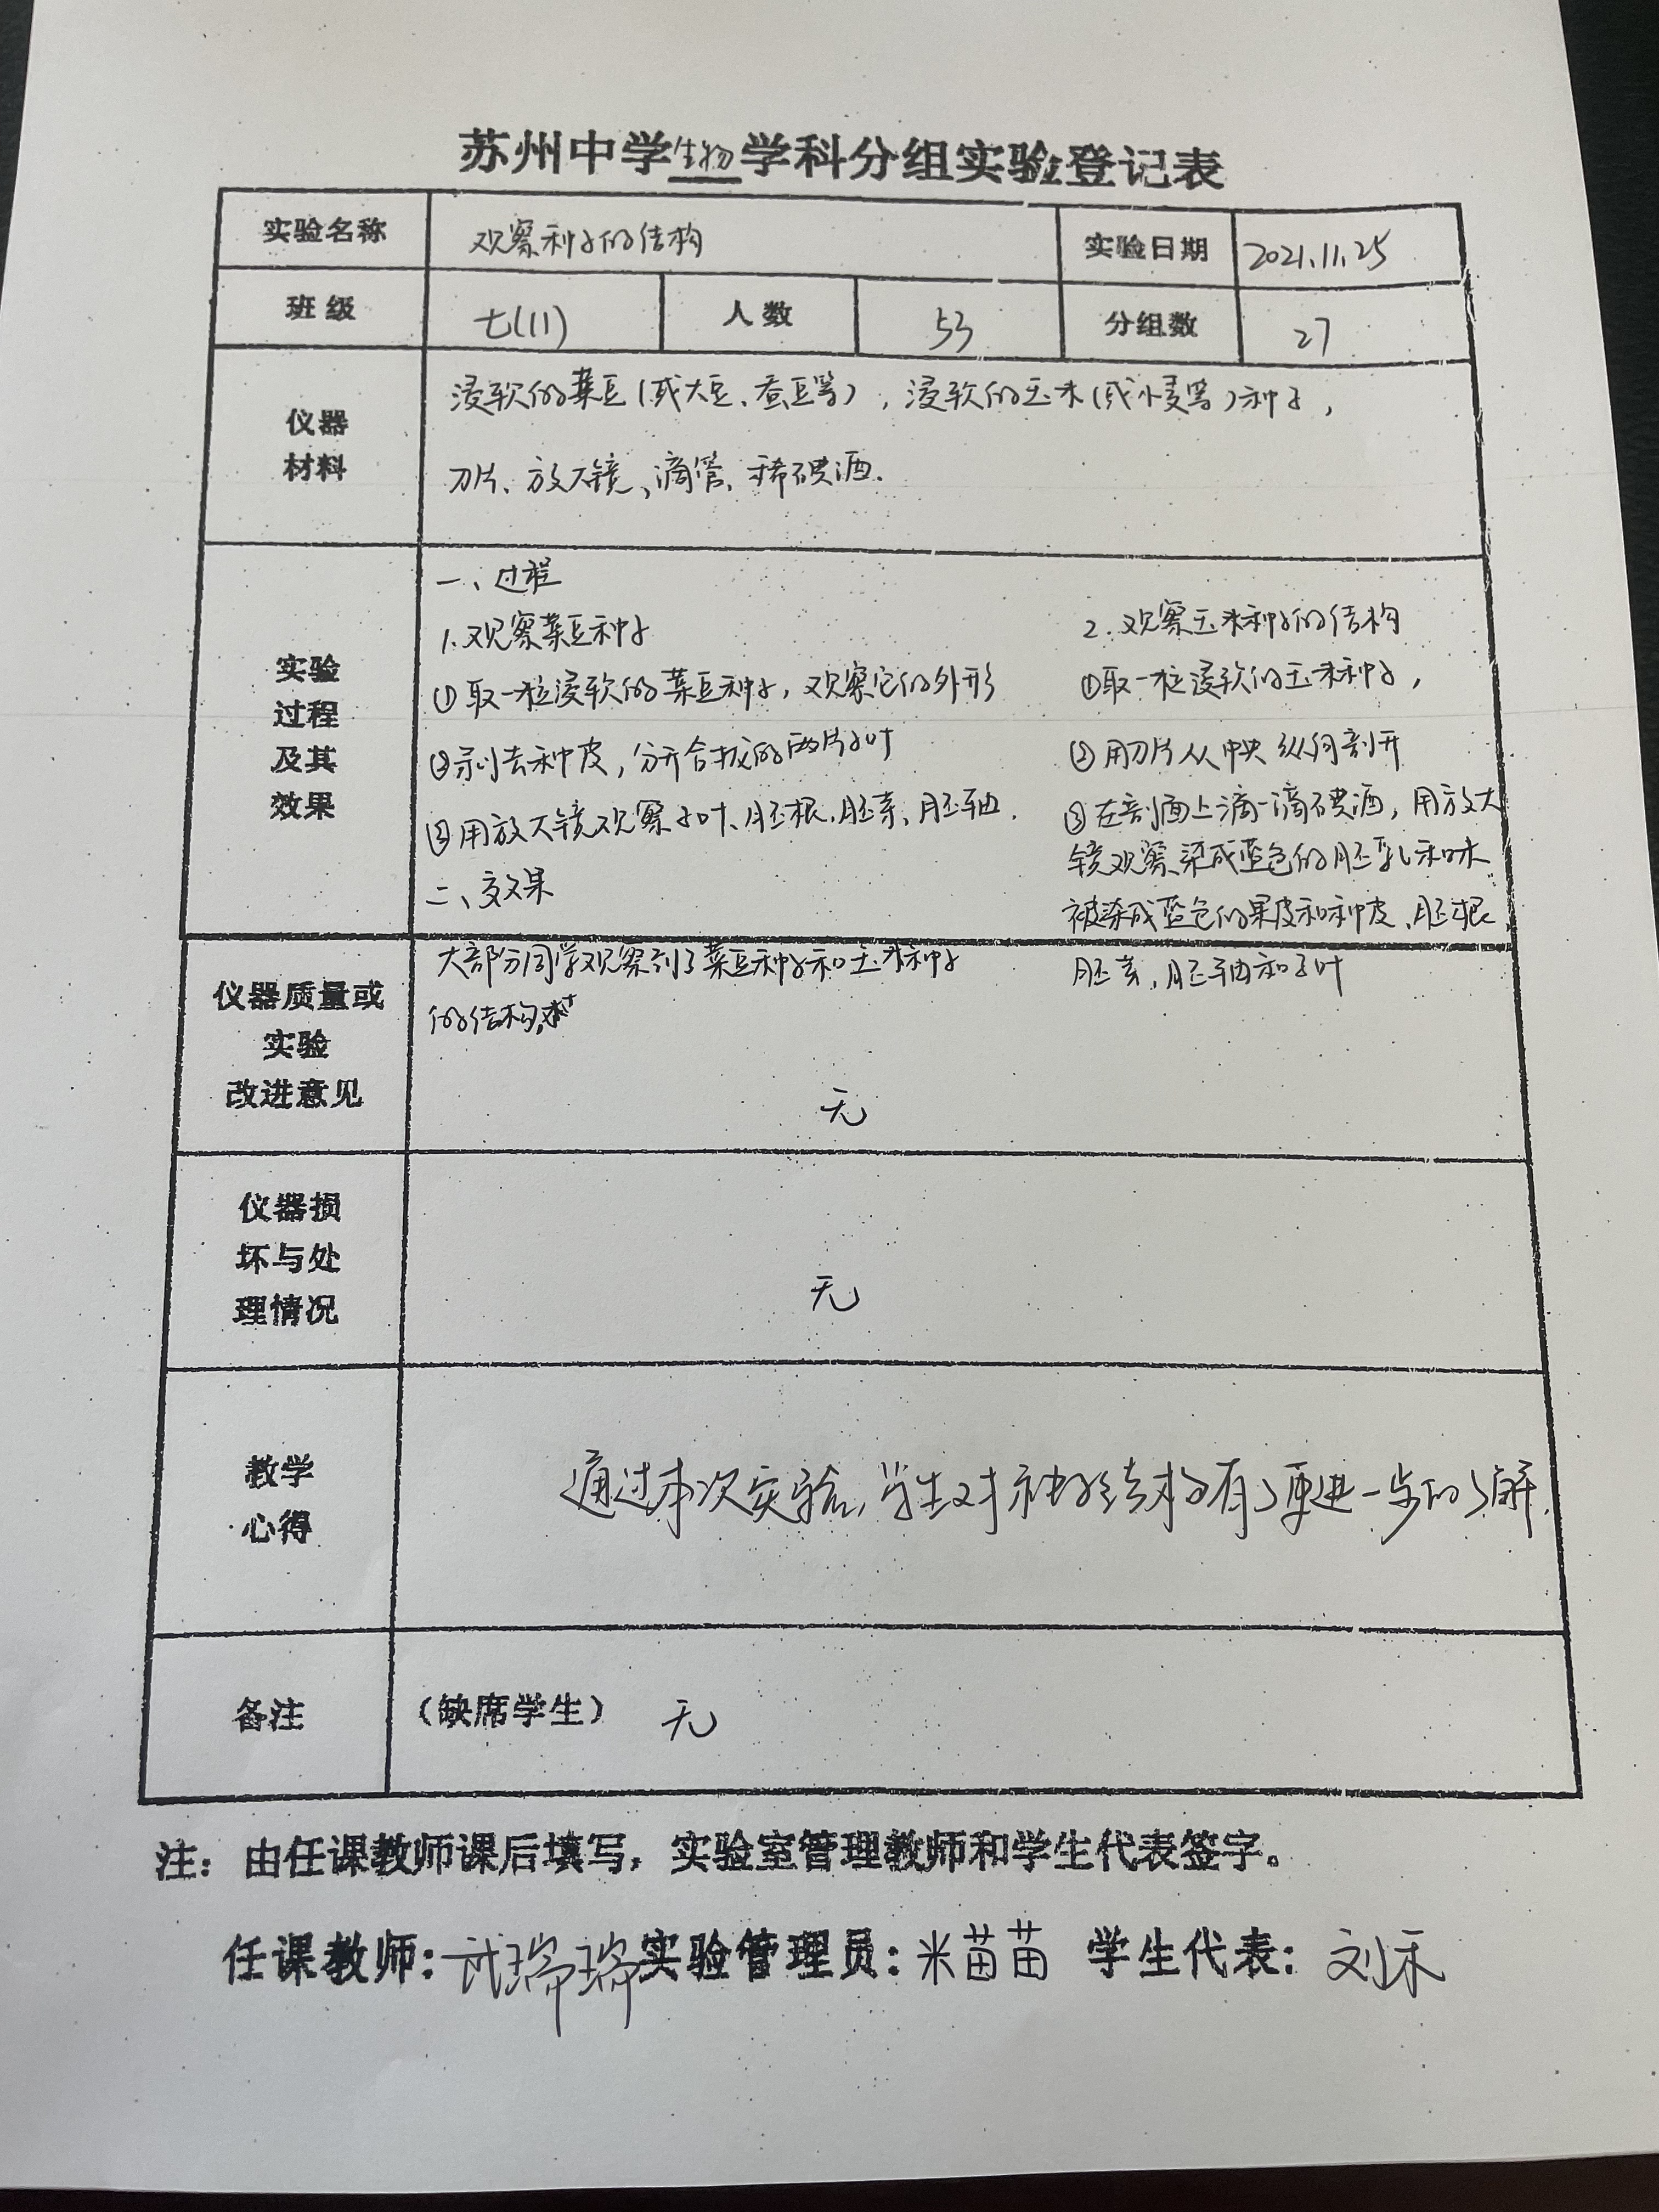 苏州中学生物学科分组实验登记表
实验名称 观察种子的结构 实验日期 2021.11.25
班 级 七(11) 人 数 53 分组数 27
仪器
材料
浸软的菜豆(或大豆、蚕豆等),浸软的玉米(或小麦等)种子,
刀片、放大镜、滴管、稀碘酒.
实验
过程
及其
效果
一、过程
1.观察菜豆种子
①取一粒浸软的菜豆种子,观察它的外形
②剥去种皮,分开合拢的两片子叶
③用放大镜观察子叶、胚根、胚芽、胚轴.
二、效果
大部分同学观察到了菜豆种子和玉米种子
的结构,
2.观察玉米种子的结构
①取一粒浸软的玉米种子,
②用刀片从中央纵向剖开
③在剖面上滴一滴碘酒,用放大
镜观察染成蓝色的胚乳和未
被染成蓝色的果皮和种皮、胚根
胚芽,胚轴和子叶
仪器质量或
实验
改进意见
无
仪器损
坏与处
理情况
无
教学
心得
通过本次实验,学生对种子结构有了更进一步的了解.
备注 (缺席学生) 无
注:由任课教师课后填写,实验室管理教师和学生代表签字。
任课教师:武瑞瑞 实验管理员:米苗苗 学生代表:刘禾